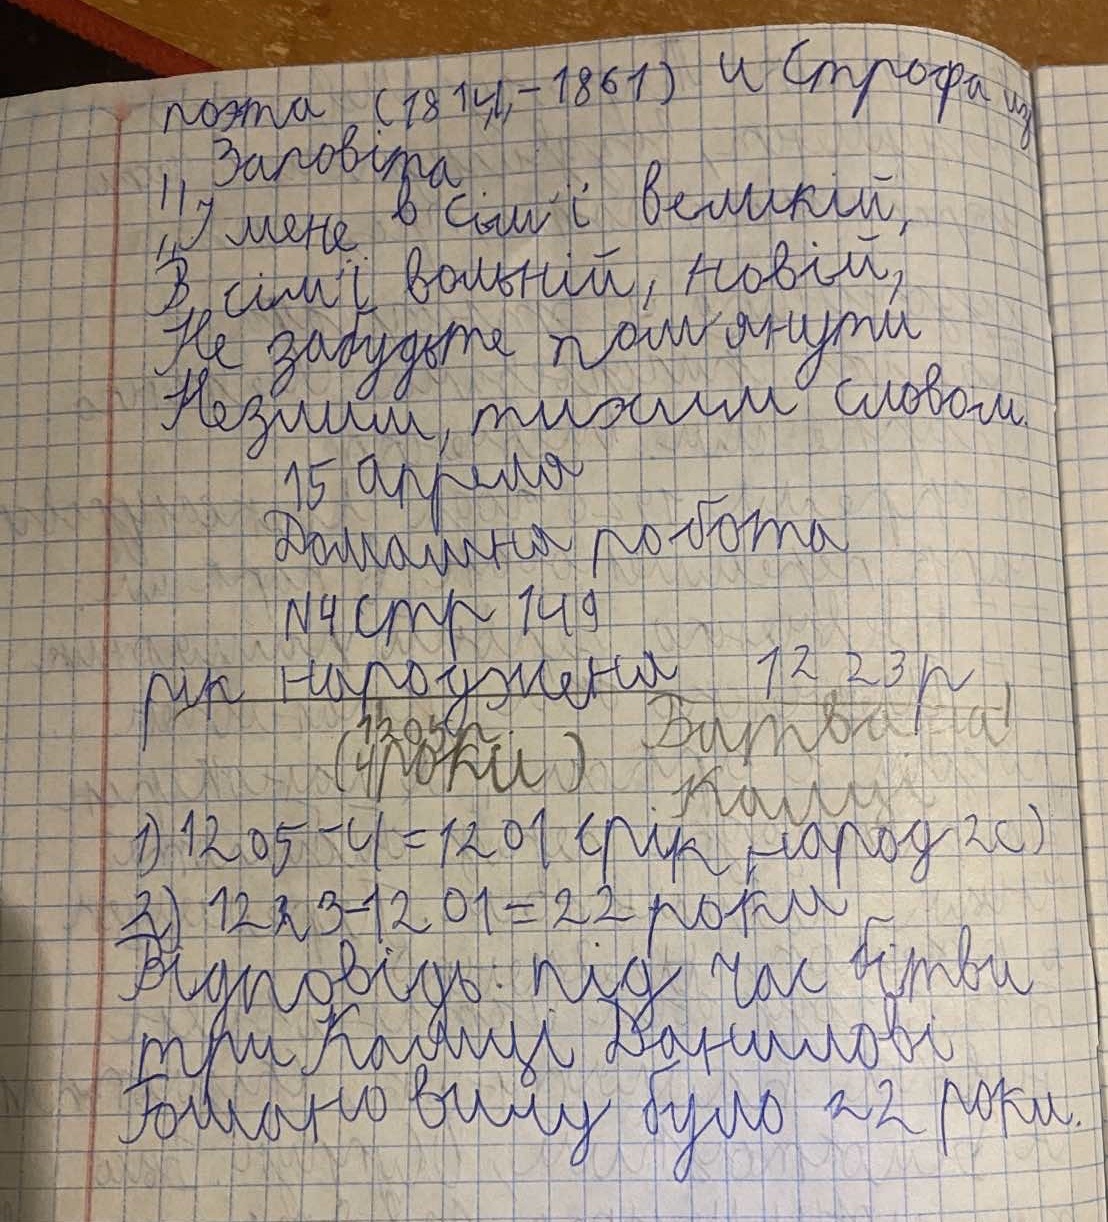 поэта (1814-1861) и Строфа из
Заповіта
"У мене в сім'ї великій,
В сім'ї вольній, новій,
Не забудьте пом'янути
Незлим, тихим словом.
15 апреля
Домашня робота
N4 стр 149
рік народження 1223р
1205р
(4роки) Битва на
Калці
1) 1205-4=1201 (рік народ
2) 1223-1201=22 роки
Відповідь: під час бітви
при Калці Данилові
Романовичу було 22 роки.